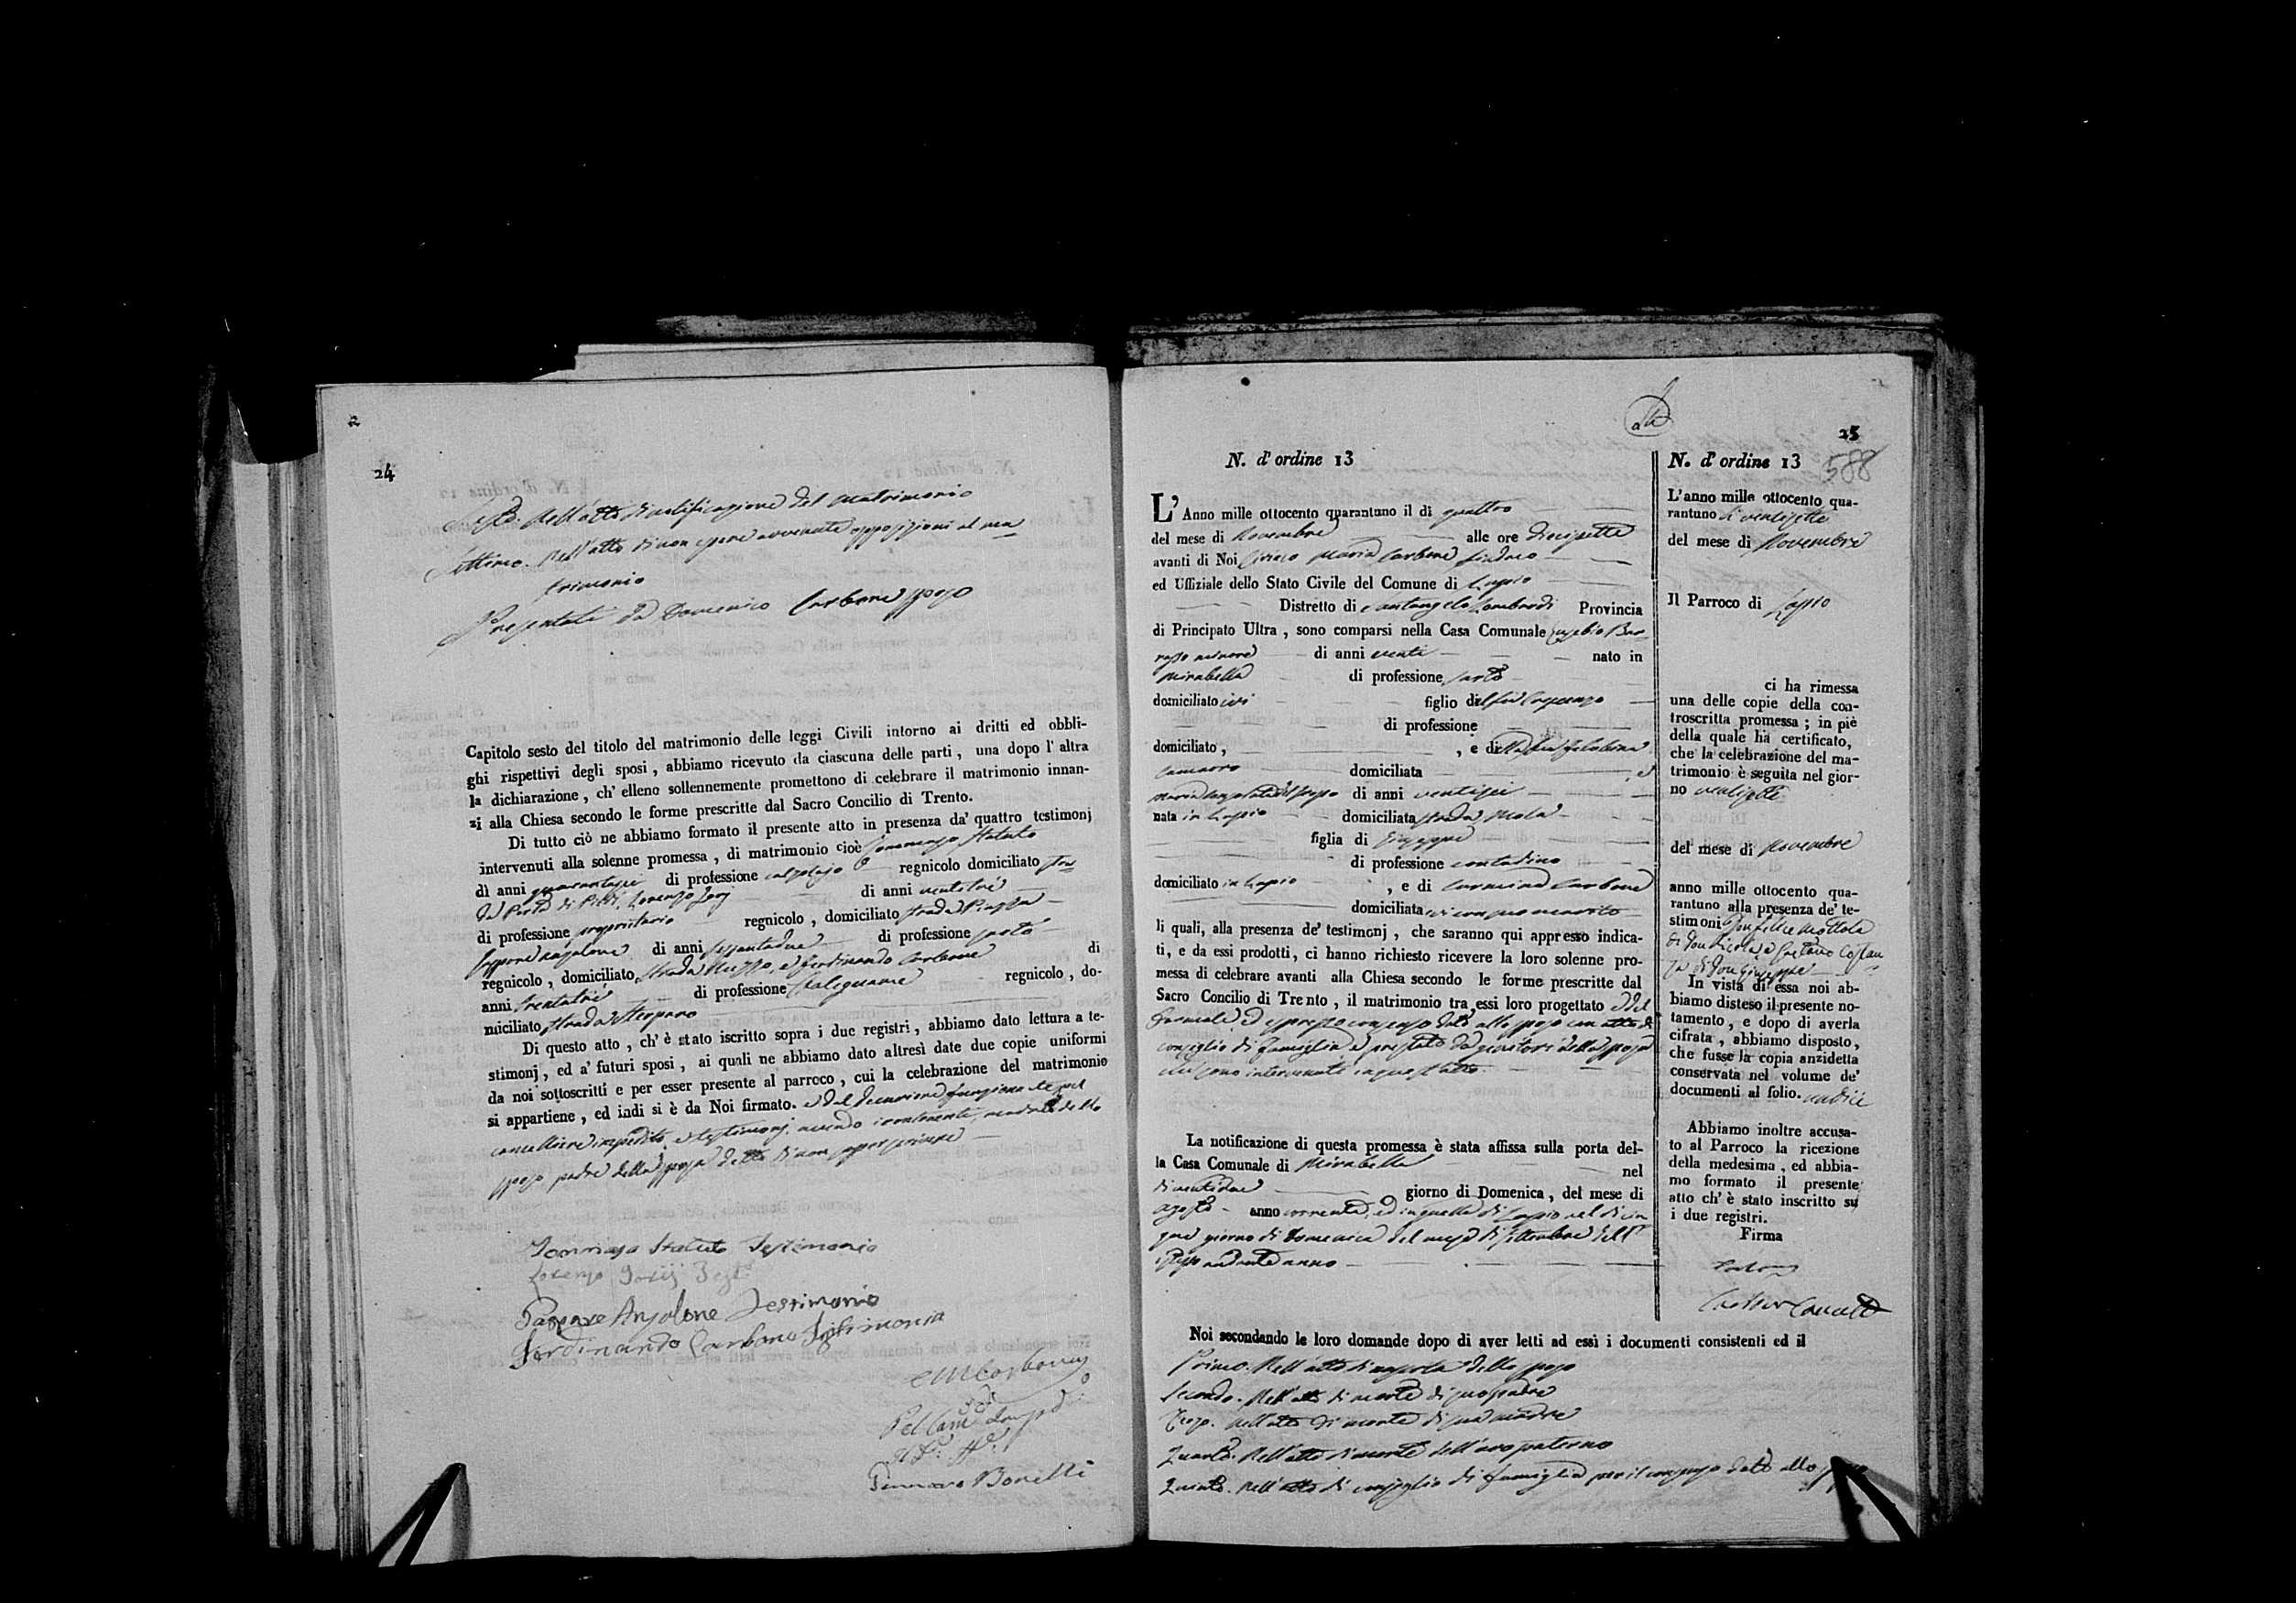 2
24
Sesto. Nell'atto di notificazione del matrimonio
Settimo. Nell'atto di non essere avvenute opposizioni al ma=
trimonio
Presentati da Domenico Carbone sposo
Capitolo sesto del titolo del matrimonio delle leggi Civili intorno ai dritti ed obbli-
ghi rispettivi degli sposi, abbiamo ricevuto da ciascuna delle parti, una dopo l'altra
la dichiarazione, ch'elleno sollennemente promettono di celebrare il matrimonio innan-
zi alla Chiesa secondo le forme prescritte dal Sacro Concilio di Trento.
Di tutto ciò ne abbiamo formato il presente atto in presenza da' quattro testimonj
intervenuti alla solenne promessa, di matrimonio cioè Tommaso Statuto
di anni quarantasei di professione calzolajo regnicolo domiciliato stra=
da Porta di Piedi, Lorenzo di anni ventitrè
di professione proprietario regnicolo, domiciliato strada Piazza
Gaspare Anzalone di anni sessantadue di professione sarto
regnicolo, domiciliato strada, e Ferdinando Carbone di
anni trentatrè di professione falegname regnicolo, do-
miciliato strada
Di questo atto, ch'è stato iscritto sopra i due registri, abbiamo dato lettura a te-
stimonj, ed a' futuri sposi, ai quali ne abbiamo dato altresì date due copie uniformi
da noi sottoscritti e per esser presente al parroco, cui la celebrazione del matrimonio
si appartiene, ed indi si è da Noi firmato. e dal decurione funzionante pel
cancelliere impedito, e testimonj, avendo i contraenti, madre dello
sposo padre della sposa detto di non saper scrivere
Tommaso Statuto Testimonio
Lorenzo
Gaspare Anzalone Testimonio
Ferdinando Carbone Testimonio
CMCarbone
Pel Canc
Gennaro Bonelli
25
588
N. d'ordine 13
L'Anno mille ottocento quarantuno il di quattro
del mese di Novembre alle ore diecisette
avanti di Noi Ciriaco Maria Carbone Sindaco
ed Uffiziale dello Stato Civile del Comune di Lapio
Distretto di Santangelo Lombardi Provincia
di Principato Ultra, sono comparsi nella Casa Comunale Eusebio Bar=
rasso minore di anni venti nato in
Mirabella di professione sarto
domiciliato ivi figlio del fu Crescenzo
di professione
domiciliato, , e della fu Filomena
domiciliata ed
Maria di anni ventisei
nata in Lapio domiciliata strada Mola
figlia di Giuseppe
di professione contadino
domiciliato in Lapio , e di Carmina Carbone
domiciliata ivi con suo marito
li quali, alla presenza de' testimonj, che saranno qui appresso indica-
ti, e da essi prodotti, ci hanno richiesto ricevere la loro solenne pro-
messa di celebrare avanti alla Chiesa secondo le forme prescritte dal
Sacro Concilio di Trento, il matrimonio tra essi loro progettato e del
formale ed espresso consenso dato allo sposo con atto di
consiglio di famiglia e prestato da genitori della sposa
che sono intervenuti in quest'atto.
La notificazione di questa promessa è stata affissa sulla porta del-
la Casa Comunale di Mirabella nel
di ventidue giorno di Domenica, del mese di
Agosto anno corrente, ed in quella di Lapio nel di cin=
que giorno di Domenica del mese di Settembre dell'
istesso andante anno
Noi secondando le loro domande dopo di aver letti ad essi i documenti consistenti ed il
Primo. Nell'atto di nascita dello sposo
Secondo. Nell'atto di morte di suo padre
Terzo. Nell'atto di morte di sua madre
Quarto. Nell'atto di morte dell'avo paterno
Quinto. Nell'atto di consiglio di famiglia per il consenso dato allo sposo
N. d'ordine 13
L'anno mille ottocento qua-
rantuno li ventisette
del mese di Novembre
Il Parroco di Lapio
ci ha rimessa
una delle copie della con-
troscritta promessa; in piè
della quale ha certificato,
che la celebrazione del ma-
trimonio è seguita nel gior-
no ventisette
del mese di Novembre
anno mille ottocento qua-
rantuno alla presenza de' te-
stimoni Don Felice Mottola
di Don Nicola e Gaetano Costan=
za di Don Giuseppe
In vista di essa noi ab-
biamo disteso il presente no-
tamento, e dopo di averla
cifrata, abbiamo disposto,
che fusse la copia anzidetta
conservata nel volume de'
documenti al folio. undici
Abbiamo inoltre accusa-
to al Parroco la ricezione
della medesima, ed abbia-
mo formato il presente
atto ch'è stato inscritto su
i due registri.
Firma